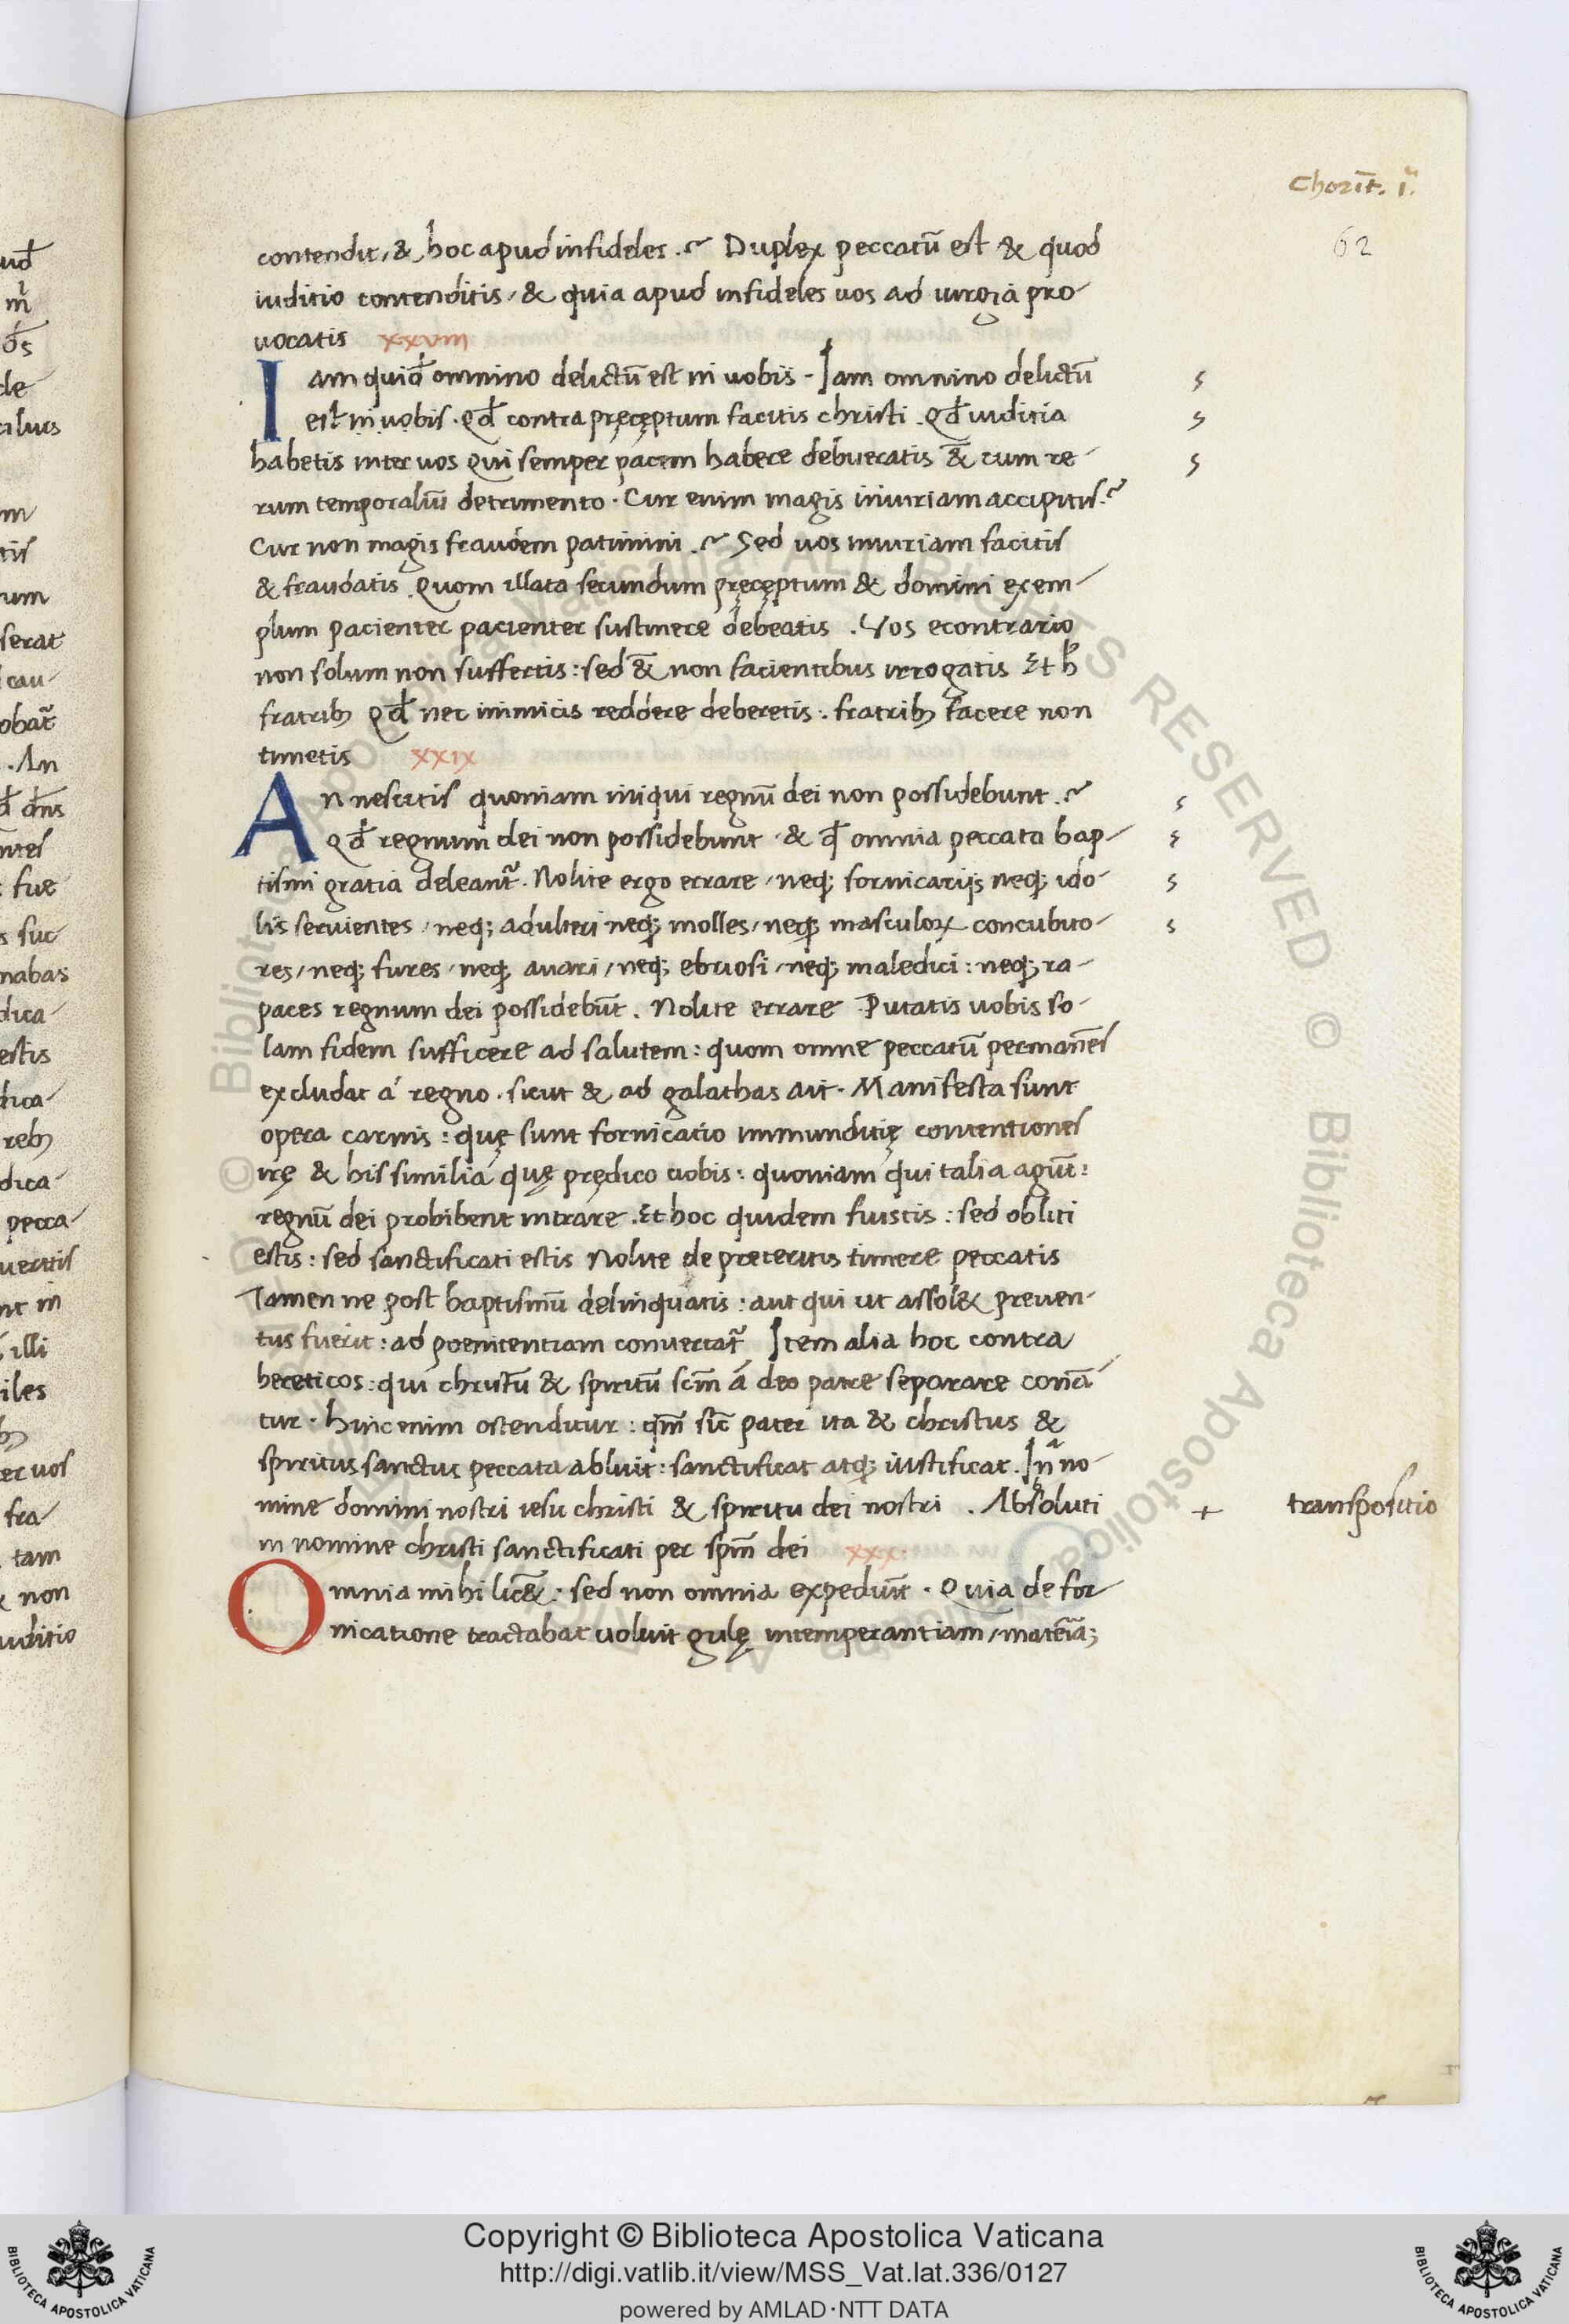 Chorīt. i.ᵃ
62
contendit, &, hoc apud infideles .~ Duplex peccatū est & quod
iuditio contenditis, & quia apud infideles uos ad iurgia pro-
uocatis xxvııı
Iam quid̄ omnino delictū est in uobis - Iam omnino delictū
est in uobis . Qd̄ contra pręcęptum facitis christi . Qd̄ iuditia
habetis inter uos Qui semper pacem habere debueratis &̄ cum re-
rum temporaliū detrimento . Cur enim magis iniuriam accipitis.~
Cur non magis fraudem patimini .~ Sed uos iniuriam facitis
& fraudatis . Quom illata secundum pręcęptum & domini exem-
plum pacienter pacienter sustinere debeatis . Vos econtrario
non solum non suffertis : sed &̄ non facientibus irrogatis Et h̄
fratrib; Qd̄ nec inimicis reddere deberetis . fratrib; facere non
timetis xxıx
An nescitis quoniam iniqui regnū dei non possidebunt .~
Qd̄ regnum dei non possidebunt . & qd̄ omnia peccata bap-
tismi gratia deleant~. Nolite ergo errare, neq; fornicarijs neq; ido-
lis seruientes, neq; adulteri neq; molles, neq; masculoꝝ concubito-
res, neq; fures, neq; auari, neq; ebriosi, neq; maledici : neq; ra-
paces regnum dei possidebūt . Nolite errare Putatis uobis so-
lam fidem sufficere ad salutem : quom omne peccatū permanēs
excludat á regno . sicut & ad galathas ait . Manifesta sunt
opera carnis : quę sunt fornicatio immunditię contentiones
irę & his similia quę prędico uobis : quoniam qui talia agūt :
regnū dei prohibent intrare . Et hoc quidem fuistis : sed obliti
estis : sed sanctificati estis Nolite de preteritis timere peccatis
Tamen ne post baptismū delinquatis : aut qui ut assol& preuen-
tus fuerit : ad poenitentiam conuertat~ Item alia hoc contra
hereticos : qui christū & spiritū scm̄ á deo patre separare conā-
tur . hinc enim ostenditur : qm̄ sic̄ pater ita & christus &
spiritus sanctus peccata abluit : sanctificat atq; iustificat . In no-
mine domini nostri iesu christi & spiritu dei nostri . Absoluti
+ transpositio
in nomine christi sanctificati per spm̄ dei xxx
Omnia mihi lic&̄ : sed non omnia expediūt . Quia de for
nicatione tractabat uoluit gulę intemperantiam, matēia;
s
s
s
s
s
s
s
Copyright © Biblioteca Apostolica Vaticana
http://digi.vatlib.it/view/MSS_Vat.lat.336/0127
powered by AMLAD·NTT DATA
BIBLIOTECA APOSTOLICA VATICANA
BIBLIOTECA APOSTOLICA VATICANA